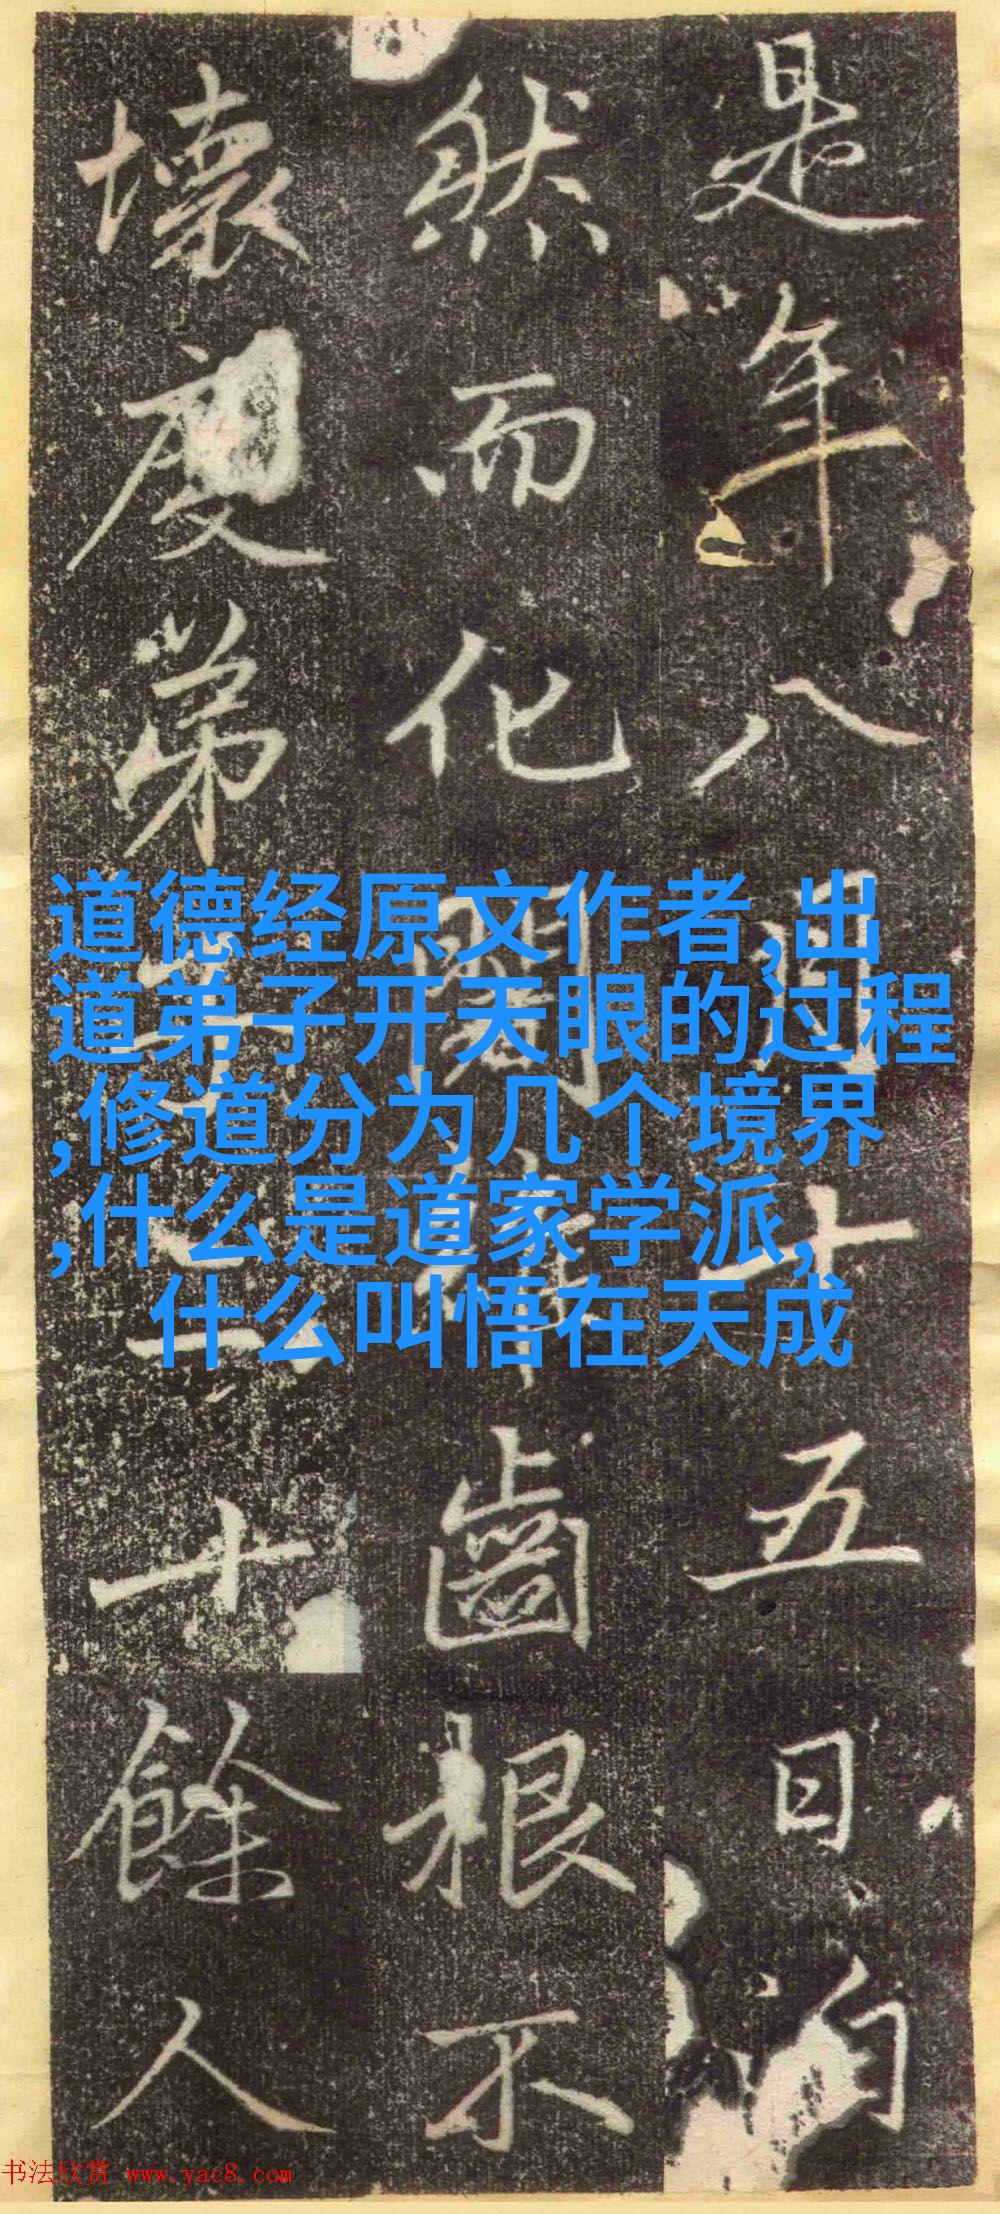 是年八月十五日
然而化闍齒根不
壞度弟子十餘人
道德经原文作者,出
道弟子开天眼的过程
,修道分为几个境界
,什么是道家学派,
什么叫悟在天成
书法欣赏 www.yac8.com